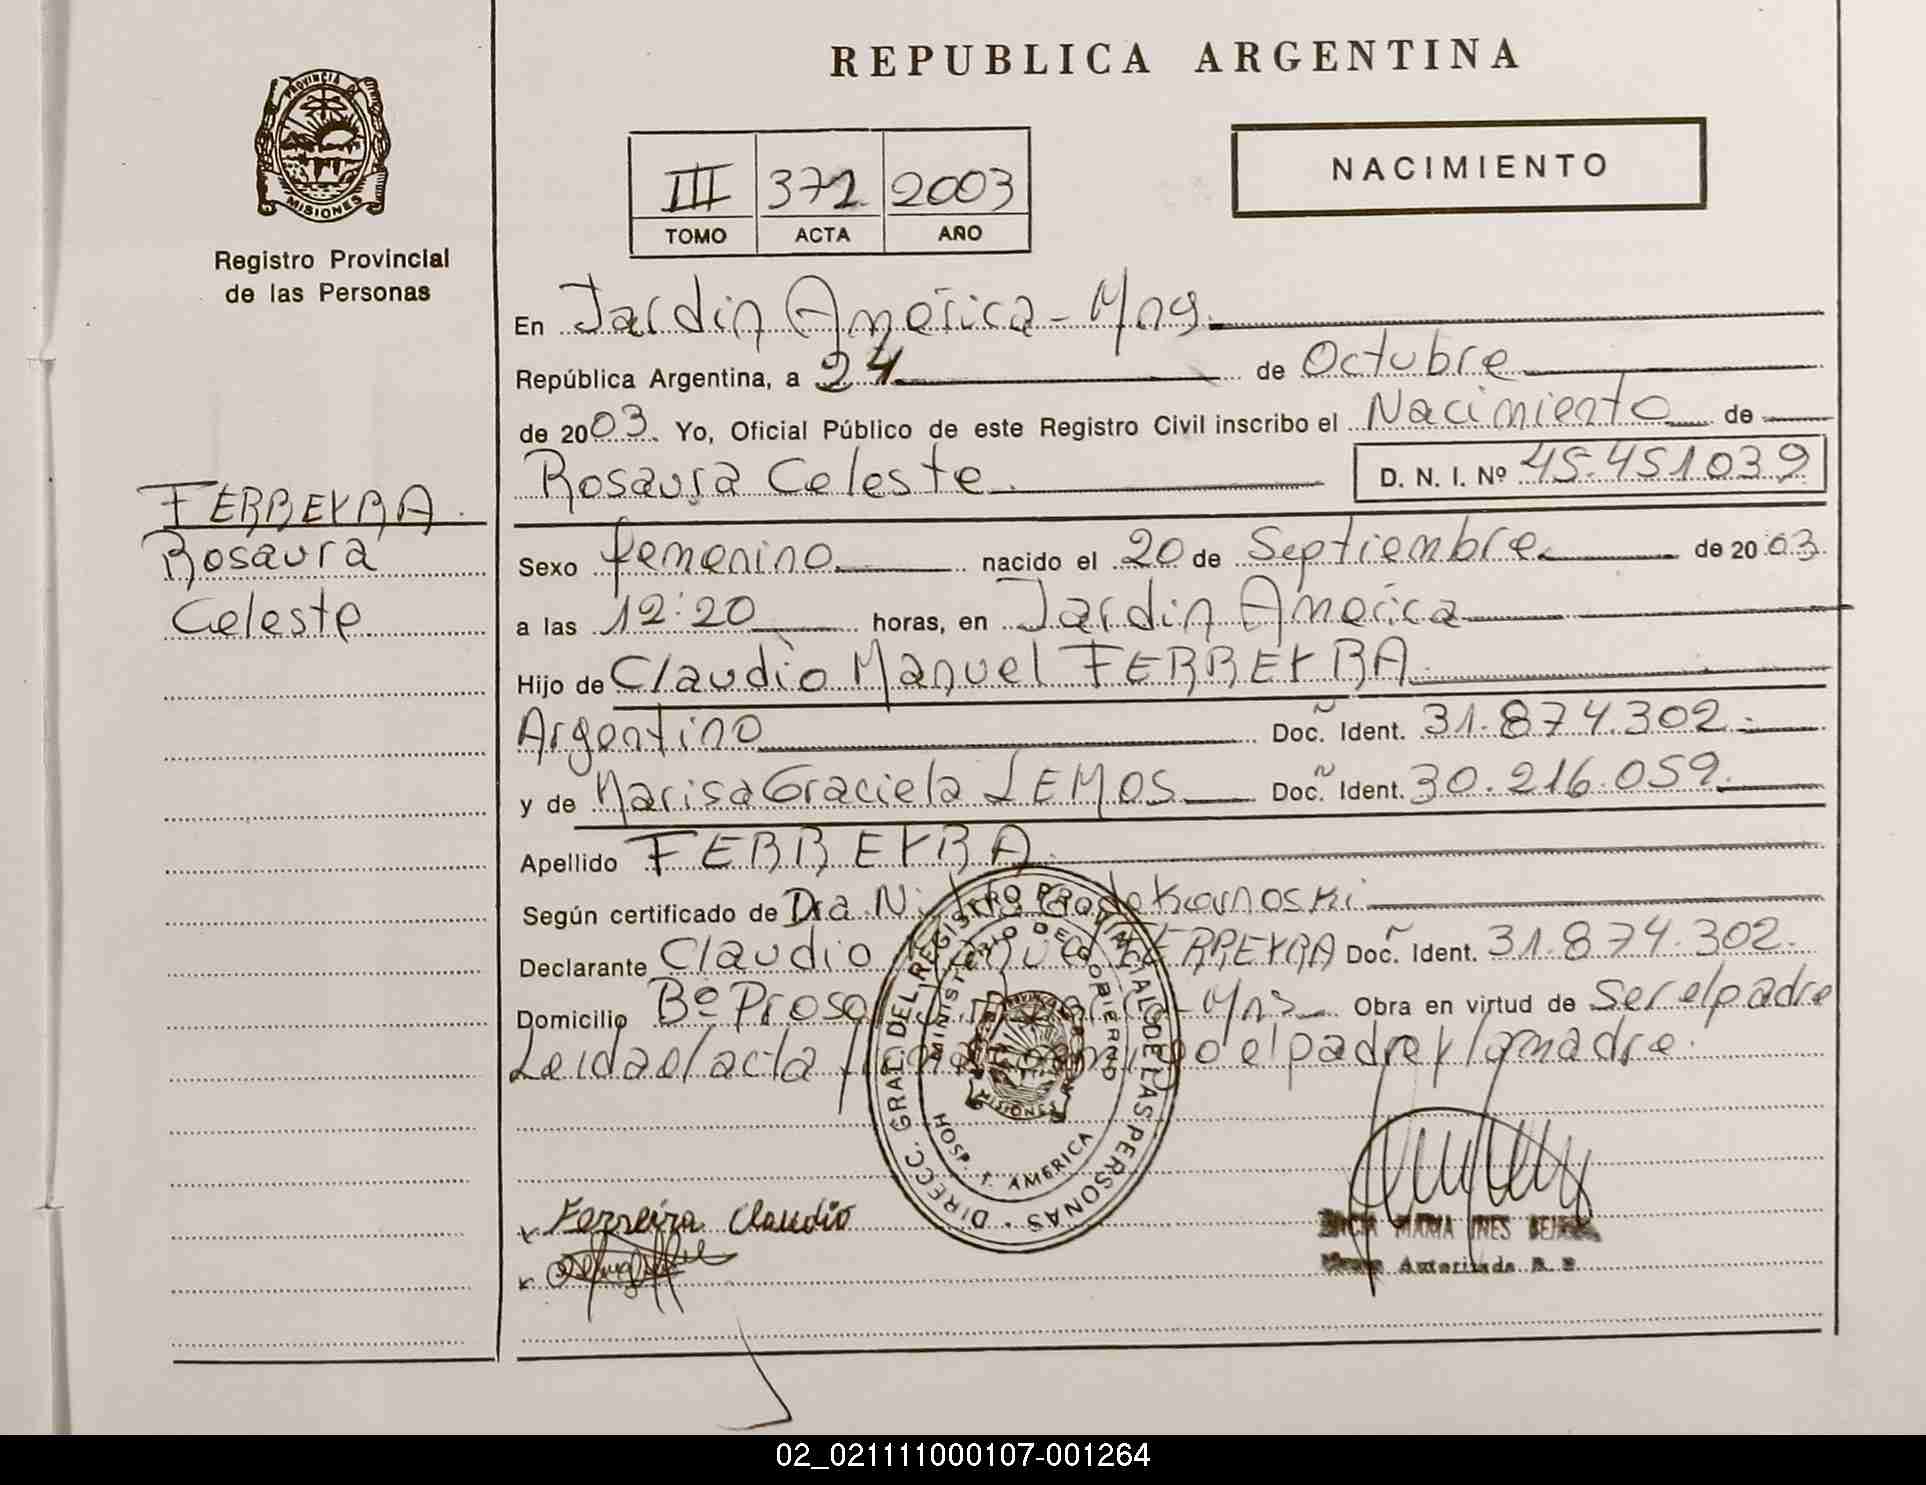 REPUBLICA ARGENTINA
PROVINCIA DE
MISIONES
Registro Provincial
de las Personas
III 372 2003
TOMO ACTA AÑO
NACIMIENTO
En Jardin América - Mns.
República Argentina, a 24 de Octubre
de 2003. Yo, Oficial Público de este Registro Civil inscribo el Nacimiento de
Rosaura Celeste D. N. I. Nº 45.451.039
FERREYRA
Rosaura
Celeste
Sexo femenino nacido el 20 de Septiembre de 2003
a las 12:20 horas, en Jardin América
Hijo de Claudio Manuel FERREYRA
Argentino Doc. Ident. 31.874.302.
y de Marisa Graciela LEMOS Doc. Ident. 30.216.059.
Apellido FERREYRA
Según certificado de Dra de Karnoski
Declarante Claudio Manuel FERREYRA Doc. Ident. 31.874.302.
Domicilio Bº Mns Obra en virtud de Ser el padre
Leida el acta el padre y la madre.
DIRECC. GRAL. DEL REGISTRO PROVINCIAL DE LAS PERSONAS
MINISTERIO DE GOBIERNO
MISIONES
HOSP. J. AMERICA
Ferreira Claudio
MARIA INES
Autorizada
02_021111000107-001264